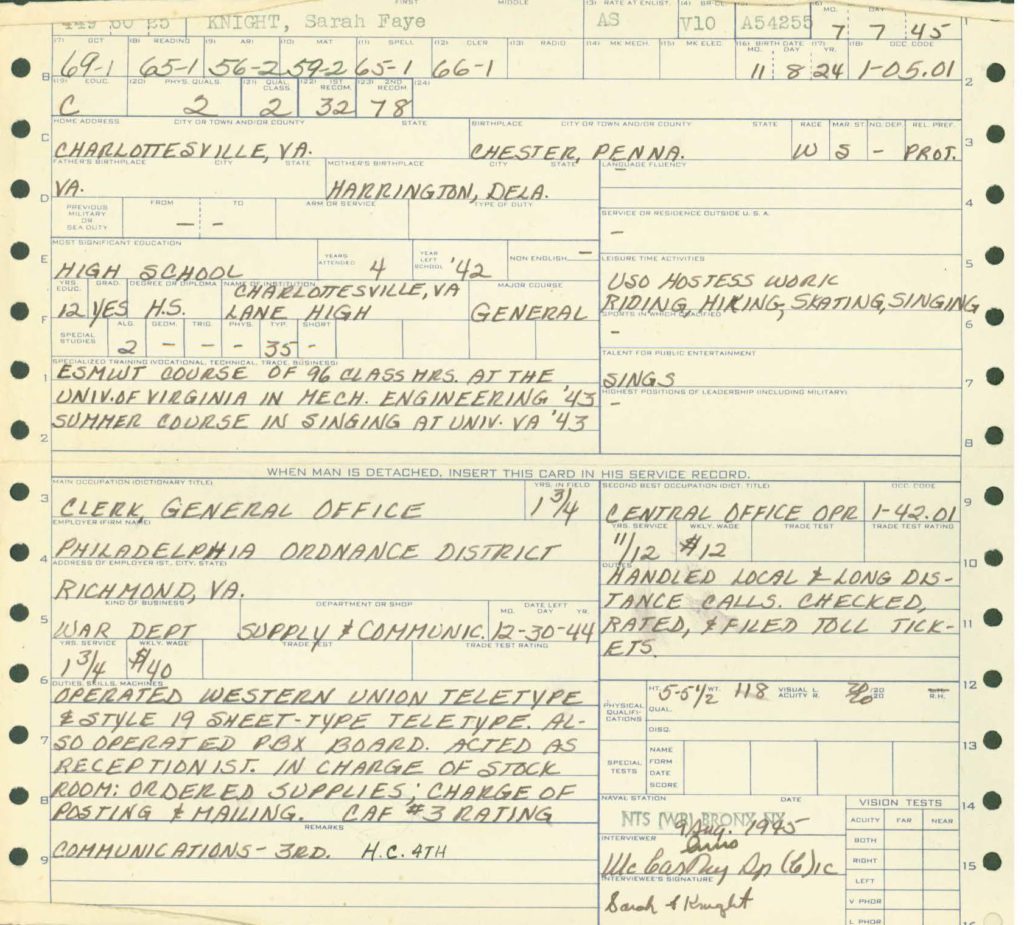 FIRST MIDDLE (13) RATE AT ENLIST. (14) BR-CL (15) (16) MO. DAY YR.
449 60 25 KNIGHT, Sarah Faye AS V10 A54255 7 7 45 1
(7) GCT (8) READING (9) AR (10) MAT (11) SPELL (12) CLER (13) RADIO (14) MK MECH. (15) MK ELEC. (16) BIRTH DATE MO. DAY (17) YR. (18) OCC. CODE
B 69-1 65-1 56-2 59-2 65-1 66-1 11 8 24 1-05.01 2
(19) EDUC. (20) PHYS. QUALS. (21) QUAL. CLASS. (22) 1ST RECOM. (23) 2ND RECOM. (24)
C 2 2 32 78
HOME ADDRESS CITY OR TOWN AND/OR COUNTY STATE BIRTHPLACE CITY OR TOWN AND/OR COUNTY STATE RACE MAR. ST. NO. DEP. REL. PREF.
C CHARLOTTESVILLE, VA. CHESTER, PENNA. W S - PROT. 3
FATHER'S BIRTHPLACE CITY STATE MOTHER'S BIRTHPLACE CITY STATE LANGUAGE FLUENCY
D VA. HARRINGTON, DELA. - 4
PREVIOUS MILITARY OR SEA DUTY FROM TO ARM OR SERVICE TYPE OF DUTY SERVICE OR RESIDENCE OUTSIDE U. S. A.
- - -
MOST SIGNIFICANT EDUCATION YEARS ATTENDED YEAR LEFT SCHOOL NON ENGLISH - LEISURE TIME ACTIVITIES
E HIGH SCHOOL 4 '42 USO HOSTESS WORK 5
YRS. EDUC. GRAD. DEGREE OR DIPLOMA NAME OF INSTITUTION MAJOR COURSE
CHARLOTTESVILLE, VA RIDING, HIKING, SKATING, SINGING
F 12 YES H.S. LANE HIGH GENERAL SPORTS IN WHICH QUALIFIED 6
SPECIAL STUDIES ALG. GEOM. TRIG. PHYS. TYP. SHORT -
2 - - - 35 - TALENT FOR PUBLIC ENTERTAINMENT
SPECIALIZED TRAINING (VOCATIONAL, TECHNICAL, TRADE, BUSINESS)
1 ESMWT COURSE OF 96 CLASS HRS. AT THE SINGS 7
UNIV. OF VIRGINIA IN MECH. ENGINEERING '43 HIGHEST POSITIONS OF LEADERSHIP (INCLUDING MILITARY)
2 SUMMER COURSE IN SINGING AT UNIV. VA '43 - 8
WHEN MAN IS DETACHED, INSERT THIS CARD IN HIS SERVICE RECORD.
MAIN OCCUPATION (DICTIONARY TITLE) YRS. IN FIELD SECOND BEST OCCUPATION (DICT. TITLE) OCC. CODE
3 CLERK, GENERAL OFFICE 1 3/4 CENTRAL OFFICE OPR 1-42.01 9
EMPLOYER (FIRM NAME) YRS. SERVICE WKLY. WAGE TRADE TEST TRADE TEST RATING
4 PHILADELPHIA ORDNANCE DISTRICT 11/12 $12
ADDRESS OF EMPLOYER (ST., CITY, STATE) DUTIES 10
RICHMOND, VA. HANDLED LOCAL & LONG DIS-
KIND OF BUSINESS DEPARTMENT OR SHOP DATE LEFT MO. DAY YR. TANCE CALLS. CHECKED,
5 WAR DEPT SUPPLY & COMMUNIC. 12-30-44 RATED, & FILED TOLL TICK- 11
YRS. SERVICE WKLY. WAGE TRADE TEST TRADE TEST RATING ETS.
6 1 3/4 $40
DUTIES, SKILLS, MACHINES PHYSICAL QUALIFI-CATIONS HT. 5-5 1/2 WT. 118 VISUAL L. ACUITY R. 20/20 R.H. 12
OPERATED WESTERN UNION TELETYPE QUAL.
& STYLE 19 SHEET-TYPE TELETYPE. AL- DISQ.
7 SO OPERATED PBX BOARD. ACTED AS SPECIAL TESTS NAME 13
RECEPTIONIST. IN CHARGE OF STOCK FORM DATE
ROOM: ORDERED SUPPLIES; CHARGE OF SCORE
8 POSTING & MAILING. CAF #3 RATING NAVAL STATION DATE VISION TESTS 14
REMARKS NTS (WR) BRONX, NY 9 Aug. 1945 ACUITY FAR NEAR
9 COMMUNICATIONS - 3RD. H.C. 4TH INTERVIEWER BOTH
Sp (C) 1C RIGHT 15
INTERVIEWEE'S SIGNATURE LEFT
Sarah F Knight V PHOR
L PHOR